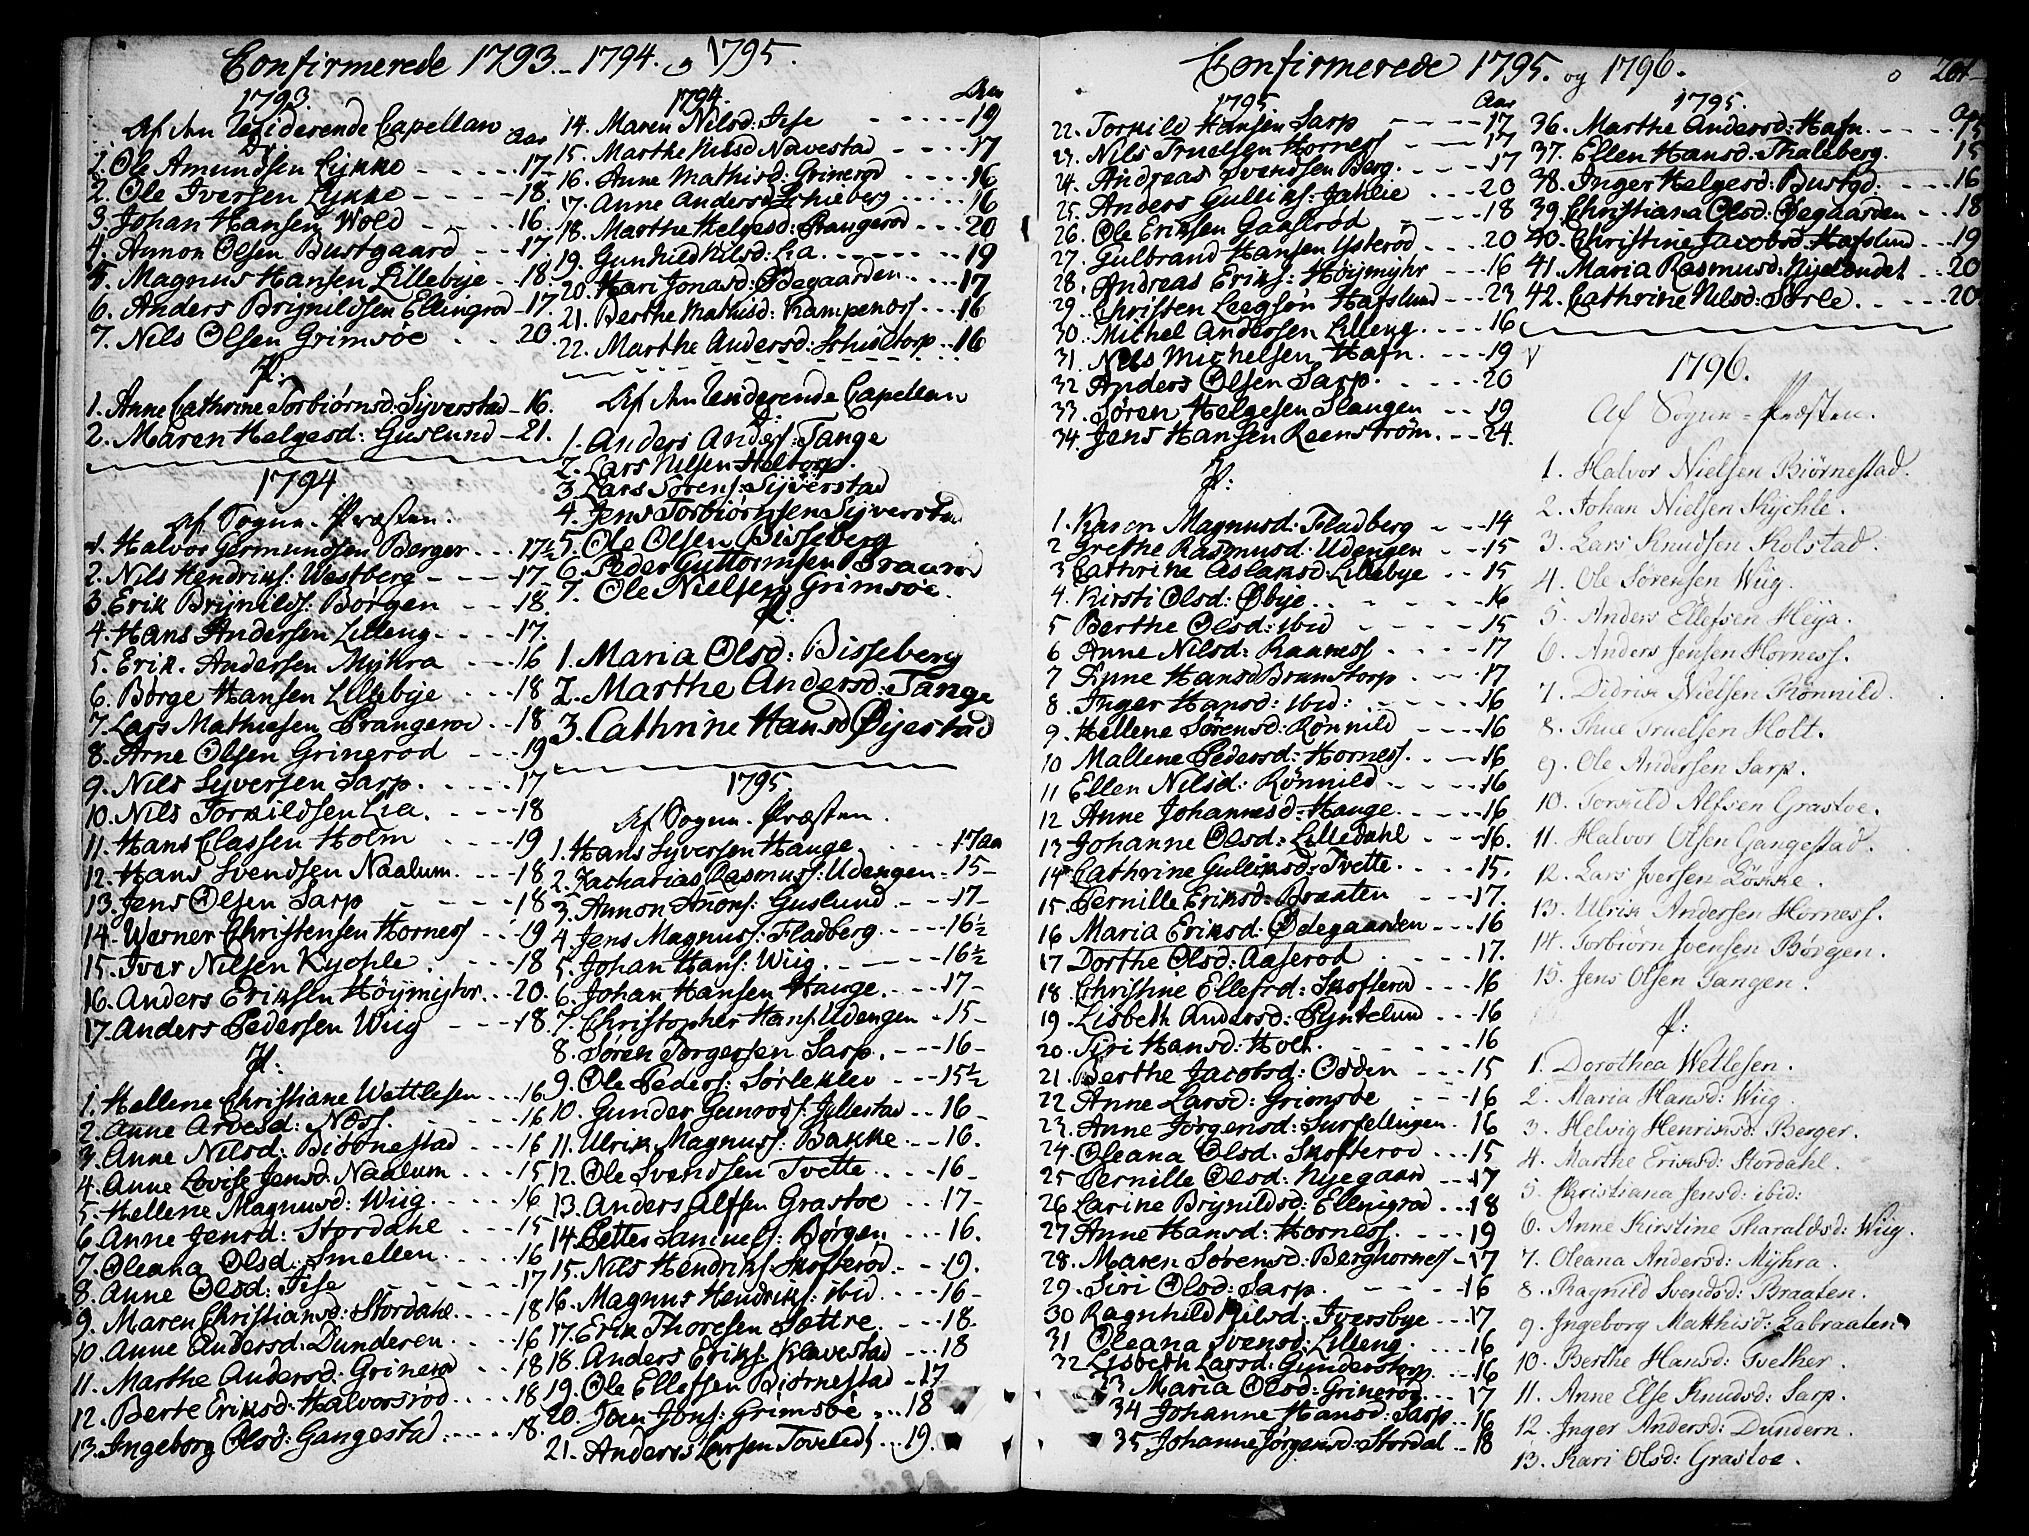 Confirmerede 1793. 1794. og 1795.
1793.
Af den residerende Capellan
Aar
1. Ole Amundsen Lykke - 17-
2. Ole Iversen Lykke - 18.
3. Johan Hansen Wold - 16.
4. Annon Olsen Bustgaard - 17
5. Magnus Hansen Lillebye - 18.
6. Anders Brynildsen Ellingrod - 17.
7. Nils Olsen Grimsøe - 20.
P:
1. Anne Cathrine Torbiørnsd: Syverstad - 16.
2. Maren Helgesd: Guslund - 21.
1794
Af Sogne-Præsten.
1. Halvor Germundsen Berger - 17½
2. Nils Hendriks: Westberg - 17-
3. Erik Brynilds: Børgen - 18.
4. Hans Andersen Lilleng - 17.
5. Erik Andersen Mykra - 16
6. Børge Hansen Lillebye - 18
7. Lars Mathiesen Prangerod - 18
8. Arne Olsen Grinerød - 19
9. Nils Syversen Sarp - 17
10. Nils Torkildsen Lia - 18
11. Hans Classen Holm - 19
12. Hans Svendsen Naalum - 18
13. Jens Olsen Sarp - 18
14. Werner Christensen Horness - 19
15. Iver Nilsen Kychle - 18
16. Anders Eriksen Höymyhr - 20.
17. Anders Pedersen Wiig - 18
P:
1. Hellene Christiane Wettlesen - 16
2. Anne Arvesd: Ness - 16
3. Anne Nilsd: Biörnestad - 16
4. Anne Lovise Jensd: Naalum - 15
5. Hellene Magnusd: Wiig - 16
6. Anne Jensd: Stordahl - 15
7. Oleana Olsd: Smellen - 16
8. Anne Olsd: Fise - 17
9. Maren Christiansd: Stordahl - 18
10. Anne Andersd: Dunderen - 16
11. Marthe Andersd: Grinerod - 18
12. Berte Eriksd: Halvorsrød - 18
13. Ingeborg Olsd: Gangestad - 18.
1794.
Aar
14. Maren Nilsd: Fise - 19
15. Marthe Nilsd Navestad - 17
16. Anne Mathisd: Grinerød - 16
17. Anne Andersd Schieberg - 16
18. Marthe Helgesd: Prangerod - 20
19. Gunhild Nilsd: Lia - 19
20. Kari Jonasd: Ødegaarden - 17
21. Berthe Mathisd: Kampeness - 16
22. Marthe Andersd: Schidetorp - 16
Af den residerende Capellan
1. Anders Anders: Tange
2. Lars Nilsen Heltorp.
3. Lars Sörens: Syverstad
4. Jens Torbiørnsen Syverstad
5. Ole Olsen Bisseberg
6. Peder Guttormsen Braarød
7. Ole Nielsen Grimsöe.
P.
1. Maria Olsd: Bisseberg
2. Marthe Andersd: Tange
3. Cathrine Hansd Øyestad
1795
Af Sogne-Præsten.
1. Hans Syversen Hauge - 17 aar
2. Zacharias Rasmuss: Udengen - 15-
3. Annon Anons: Guslund - 17-
4. Jens Magnuss: Fladberg - 16½
5. Johan Hans: Wiig - 16½
6. Johan Hansen Hauge - 17-
7. Christopher Hans: Udengen - 15-
8. Søren Børgersen Sarp - 16-
9. Ole Peders: Sørleklev - 15½
10. Gunder Gunross: Jellestad - 16-
11. Ulrik Magnuss: Bakke - 16.
12. Ole Svendsen Tvette - 16-
13. Anders Alfsen Grastoe - 17-
14. Petter Samuels: Børgen - 16.
15. Nils Hendriks: Skofterød - 19.
16. Magnus Hendriks: ibid - 16-
17. Erik Thoresen Sættre - 18.
18. Anders Eriks: Navestad - 18
19. Ole Ellefsen Biørnestad - 17
20. Jon Jons: Grimsøe - 18
21. Anders Larsen - 19.
Confirmerede 1795. og 1796.
1795
Aar
22. Torkild Hansen Sarp - 17
23. Nils Truelsen Horness - 17
24. Andreas Svendsen Berg - 17
25. Anders Gulliks: Jahlie - 20
26. Ole Eriksen Gaaserød - 18
27. Gulbrand Hansen Ysterød - 20
28. Andreas Eriks: Höijmyhr - 16
29. Christen Leegson Hafslund - 23
30. Michel Andersen Lilleng - 16
31. Nils Michelsen Hafn - 19
32. Anders Olsen Sarp - 20
33. Søren Helgesen Slangen - 19
34. Jens Hansen Reenstrøm - 24.
P:
1. Karen Magnusd: Fladberg - 14
2 Grethe Rasmusd: Udengen - 15
3 Cathrine Aslaksd: Lillebye - 15
4. Kirsti Olsd: Øbye - 16
5 Berthe Olsd: ibid - 15
6 Anne Nilsd: Raaness - 17
7 Anne Hansd Brunstorp - 17
8. Inger Hansd: ibid: - 16
9. Hellene Sørensd: Rønnild - 16
10 Mallene Pedersd: Horness - 16
11 Ellen Nilsd: Rønnild - 16
12 Anne Johannesd: Hauge - 16
13 Johanne Olsd: Lilledahl - 16.
14 Cathrine Gulliksd: Tvette - 15.
15. Pernille Eriksd: Braaten - 17.
16 Maria Eriksd: Ødegaarden - 16
17 Dorthe Olsd: Aaserod - 17.
18 Christine Ellefsd: Skofterød - 16
19. Lisbeth Andersd: Pyntelund - 16
20. Siri Hansd: Holt - 16
21. Berthe Jacobsd: Odden - 15
22 Anne Larsd: Grimsøe - 16
23. Anne Jørgensd: Surfellingen 16
24 Oleana Olsd: Skofterod - 15
25 Pernille Olsd: Nyegaard - 17
26 Larine Brynildsd: Ellingrød - 18
27 Anne Hansd: Horness - 19
28. Maren Sørensd: Berghorness - 17
29. Siri Olsd: Sarp - 16
30 Ragnhild Nilsd: Iversbye - 17
31 Oleana Svensd: Lilleng - 16
32 Lisbeth Larsd: Gunderstorp - 16
33 Maria Olsd: Grinerød - 17
34 Johanne Hansd: Sarp - 16
35 Johanne Jørgensd: Stordal - 18
1795.
36. Marthe Andersd: Hafn - 15
37. Ellen Hansd: Thaleberg. 15
38. Inger Helgesd: Bustgd. - 16
39. Christiana Olsd: Ødegaarden - 18
40. Christine Jacobsd: Hafslund - 19
41. Maria Rasmusd: Nyelendet - 20
42. Cathrine Nilsd: Sørle - 20
1796.
Af Sogne-Præsten.
1. Halvor Nielsen Biørnestad.
2. Johan Nielsen Kychle.
3. Lars Knudsen Kolstad.
4. Ole Sørensen Wiig.
5. Anders Ellefsen Heija.
6. Anders Jensen Horness.
7. Didrik Nielsen Rönnild.
8. Thue Truelsen Holt.
9. Ole Andersen Sarp.
10. Torkild Alfsen Grastoe.
11. Halvor Olsen Gangestad.
12. Lars Iversen Løkke.
13. Ulrik Andersen Horness.
14. Torbiørn Jvensen Børgen.
15. Jens Olsen Tangen.
P:
1. Dorothea Wetlesen.
2. Maria Hansd: Wiig.
3. Helvig Henriksd: Berger.
4. Marthe Eriksd: Stordahl.
5. Christiana Jensd: ibid:
6. Anne Kirstine Tharaldsd: Wiig.
7. Oleana Andersd: Mykra.
8. Ragnild Svendsd: Braaten.
9. Ingeborg Matthisd: Labraaten
10. Berthe Hansd: Tvether.
11. Anne Else Knudsd: Sarp.
12. Inger Andersd: Dundern.
13. Kari Olsd: Grastoe.